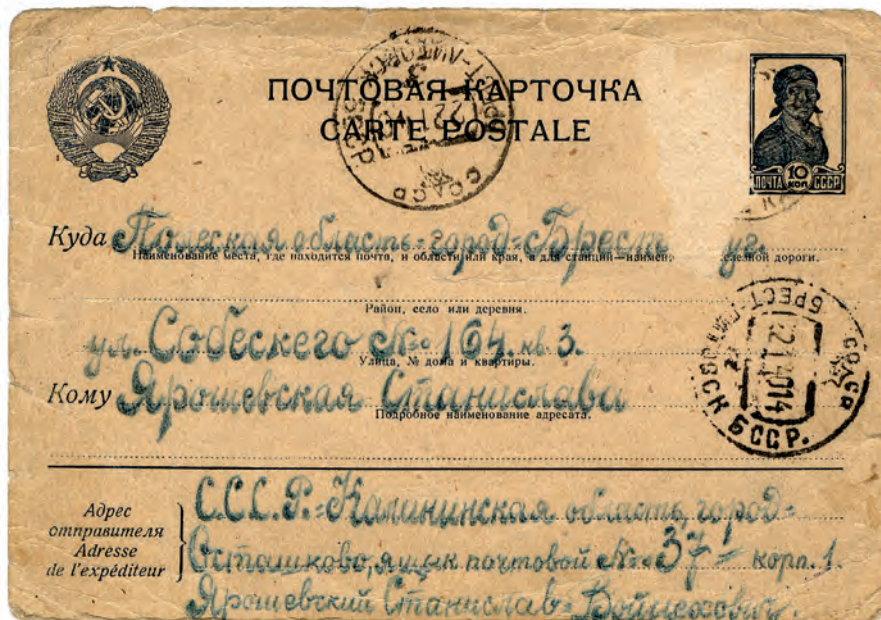 ПОЧТОВАЯ КАРТОЧКА
CARTE POSTALE
ПОЧТА 10 КОП СССР
Куда Полеская область=город=Брест
Наименование места, где находится почта, и области или края, а для станций—наимен елезной дороги.
Район, село или деревня.
ул. Собеского №= 164. кв. 3.
Улица, № дома и квартиры.
Кому Ярошевская Станислава
Подробное наименование адресата.
БРЕСТ-ЛИТОВСК БССР.
22 1 40 14
Адрес
отправителя
Adresse
de l'expéditeur
С.С.С.Р.=Калининская область, город=
Осташково, ящик почтовой №= 37 корп. 1.
Ярошевский Станислав= Войцехович.